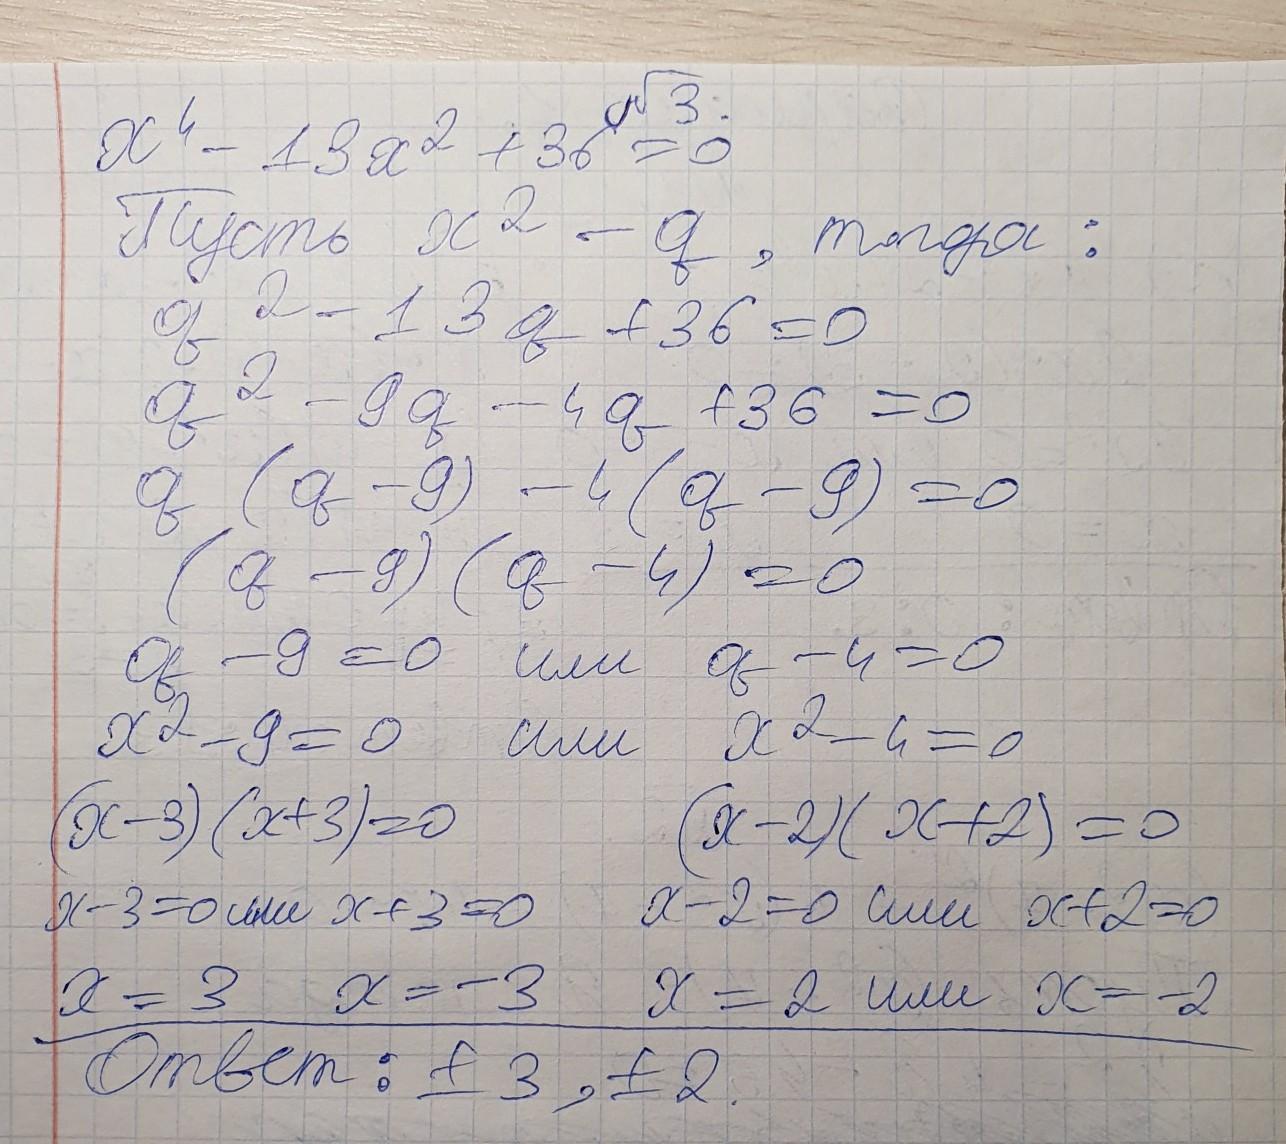 √3.
x⁴ - 13x² + 36 = 0
Пусть x² - q, тогда:
q² - 13q + 36 = 0
q² - 9q - 4q + 36 = 0
q (q - 9) - 4 (q - 9) = 0
(q - 9) (q - 4) = 0
q - 9 = 0 или q - 4 = 0
x² - 9 = 0 или x² - 4 = 0
(x - 3) (x + 3) = 0 (x - 2) (x + 2) = 0
x - 3 = 0 или x + 3 = 0 x - 2 = 0 или x + 2 = 0
x = 3 x = -3 x = 2 или x = -2
Ответ: ±3, ±2.